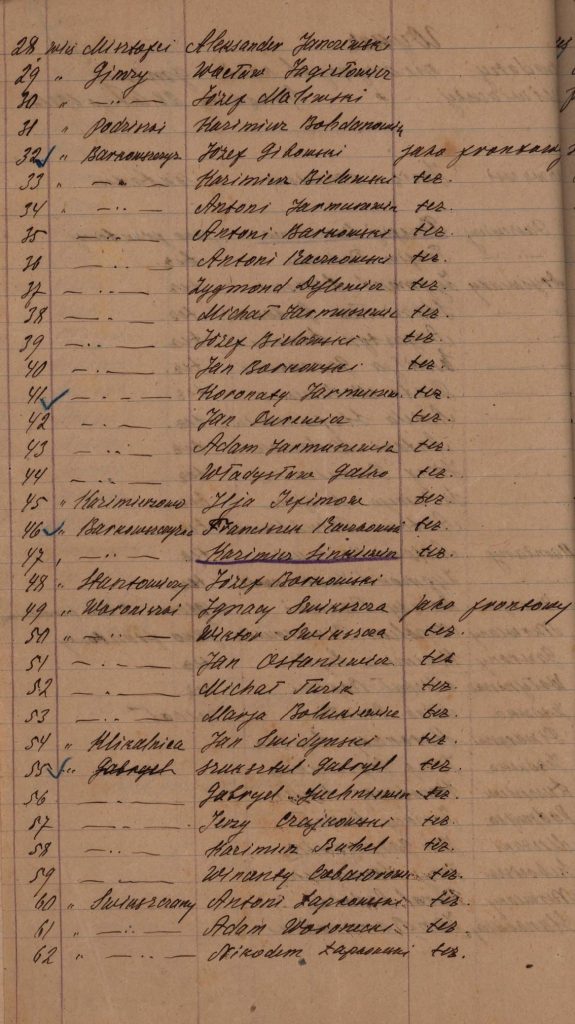 28 wieś Misztofci Aleksander Janczewski
29 " Gimzy Wacław Jagiełowicz
30 " — " — Józef Malewski
31 " Podziszki Kazimierz Bohdanowicz
32 " Barkowszczyz Józef Gibowski jako frontowy
33 " — " — Kazimierz Bielawski też.
34 " — " — Antoni Jarmuszewicz też.
35 — " — Antoni Barkowski też.
36 — " — Antoni Raczkowski też.
37 — " — Zygmond też.
38 — " — Michał Jarmuszewic też.
39 — " — Józef Bielawski też.
40 — " — Jan Borkowski też.
41 — " — Koronaty Jarmuszew też.
42 — " — Jan Curewicz też.
43 — " — Adam Jarmuszewicz też.
44 — " — Władysław Galko też.
45 " Kazimierzowo Ilja Jefimow też.
46 " Barkowszczyzna Franciszek Raczkowski też.
47 " — " — Kazimierz Sinkiewicz też.
48 " Stantowiczy Józef Borkowski
49 " Woroniszki Ignacy Swikszcza jako frontowy
50 " — " — Wiktor Swikszcza też.
51 — " — Jan Ostaniewicz też.
52 — " — Michał Turik też.
53 — " — Marja też.
54 " Klikalnica Jan Swidynski też.
55 " Gabryel Szuksztul Gabryel też.
56 — " — Gabryel też.
57 — " — Jerzy Czajkowski też.
58 " — " — Kazimierz Buhel też.
59 " — " — Wincenty też.
60 " Swiuszczany Antoni Łapkowski też.
61 " — " — Adam Woronecki też.
62 " — " — Nikodem Łapkowski też.